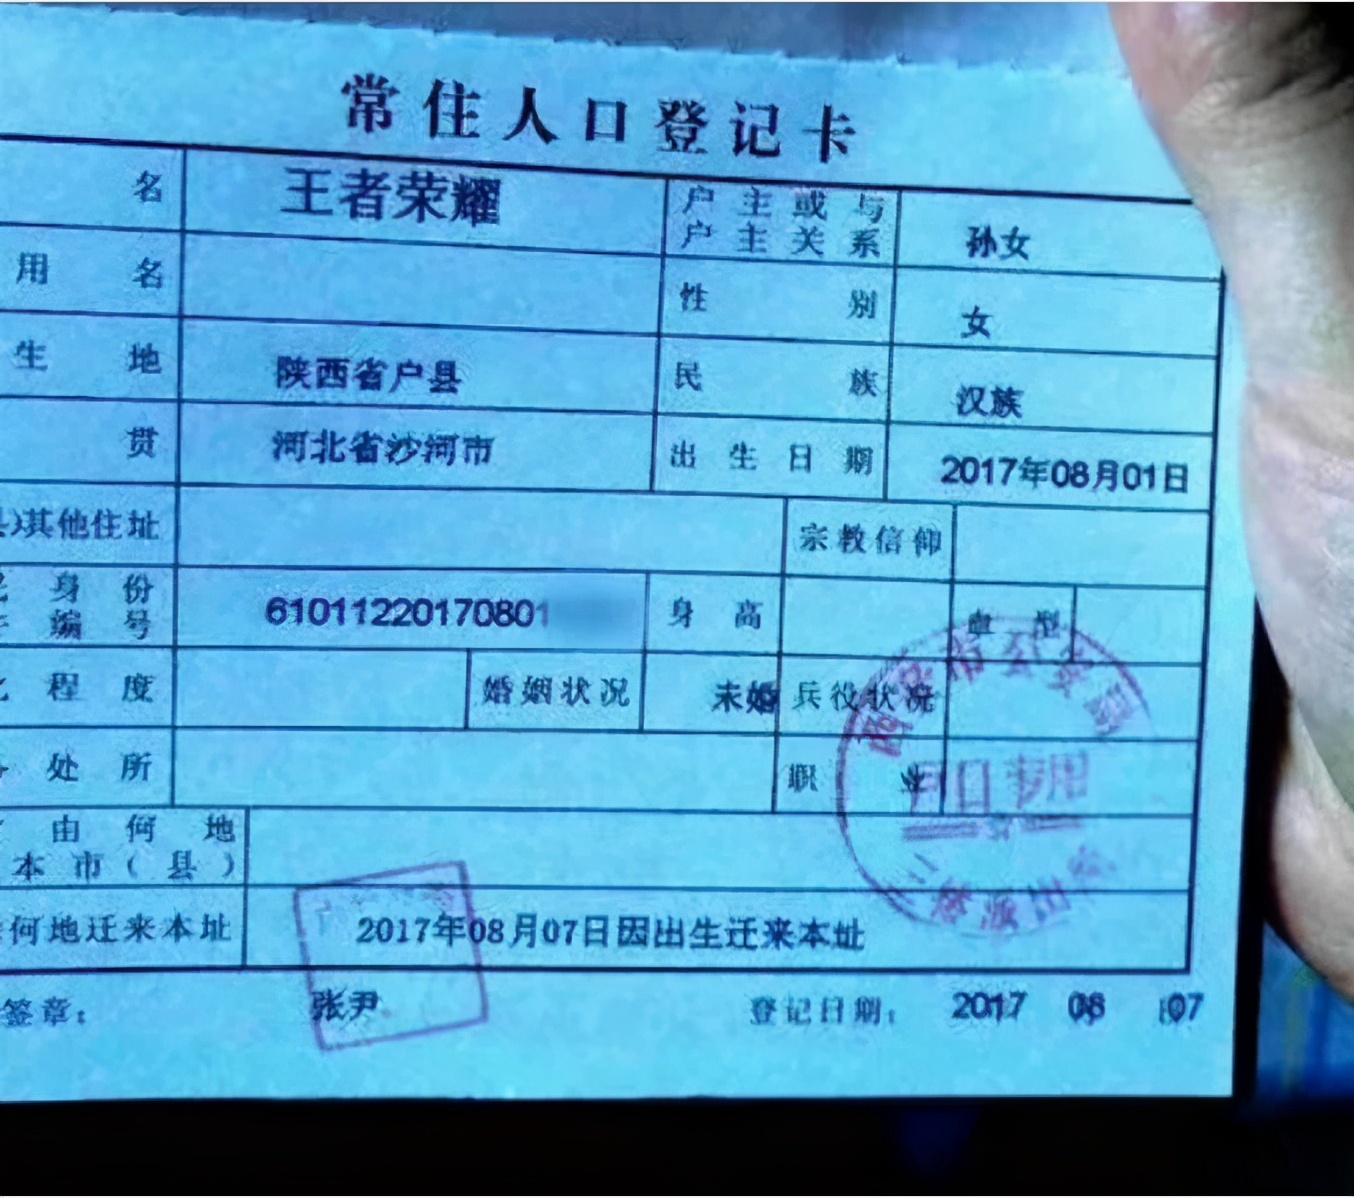 常住人口登记卡
名 王者荣耀 户主或与户主关系 孙女
用名 性别 女
生地 陕西省户县 民族 汉族
贯 河北省沙河市 出生日期 2017年08月01日
)其他住址 宗教信仰
身份编号 61011220170801 身高 血型
程度 婚姻状况 未婚 兵役状况
处所 职业
由何地
本市(县)
何地迁来本址 2017年08月07日因出生迁来本址
签章： 张尹 登记日期： 2017 08 07
市公安局
户口专用
派出所